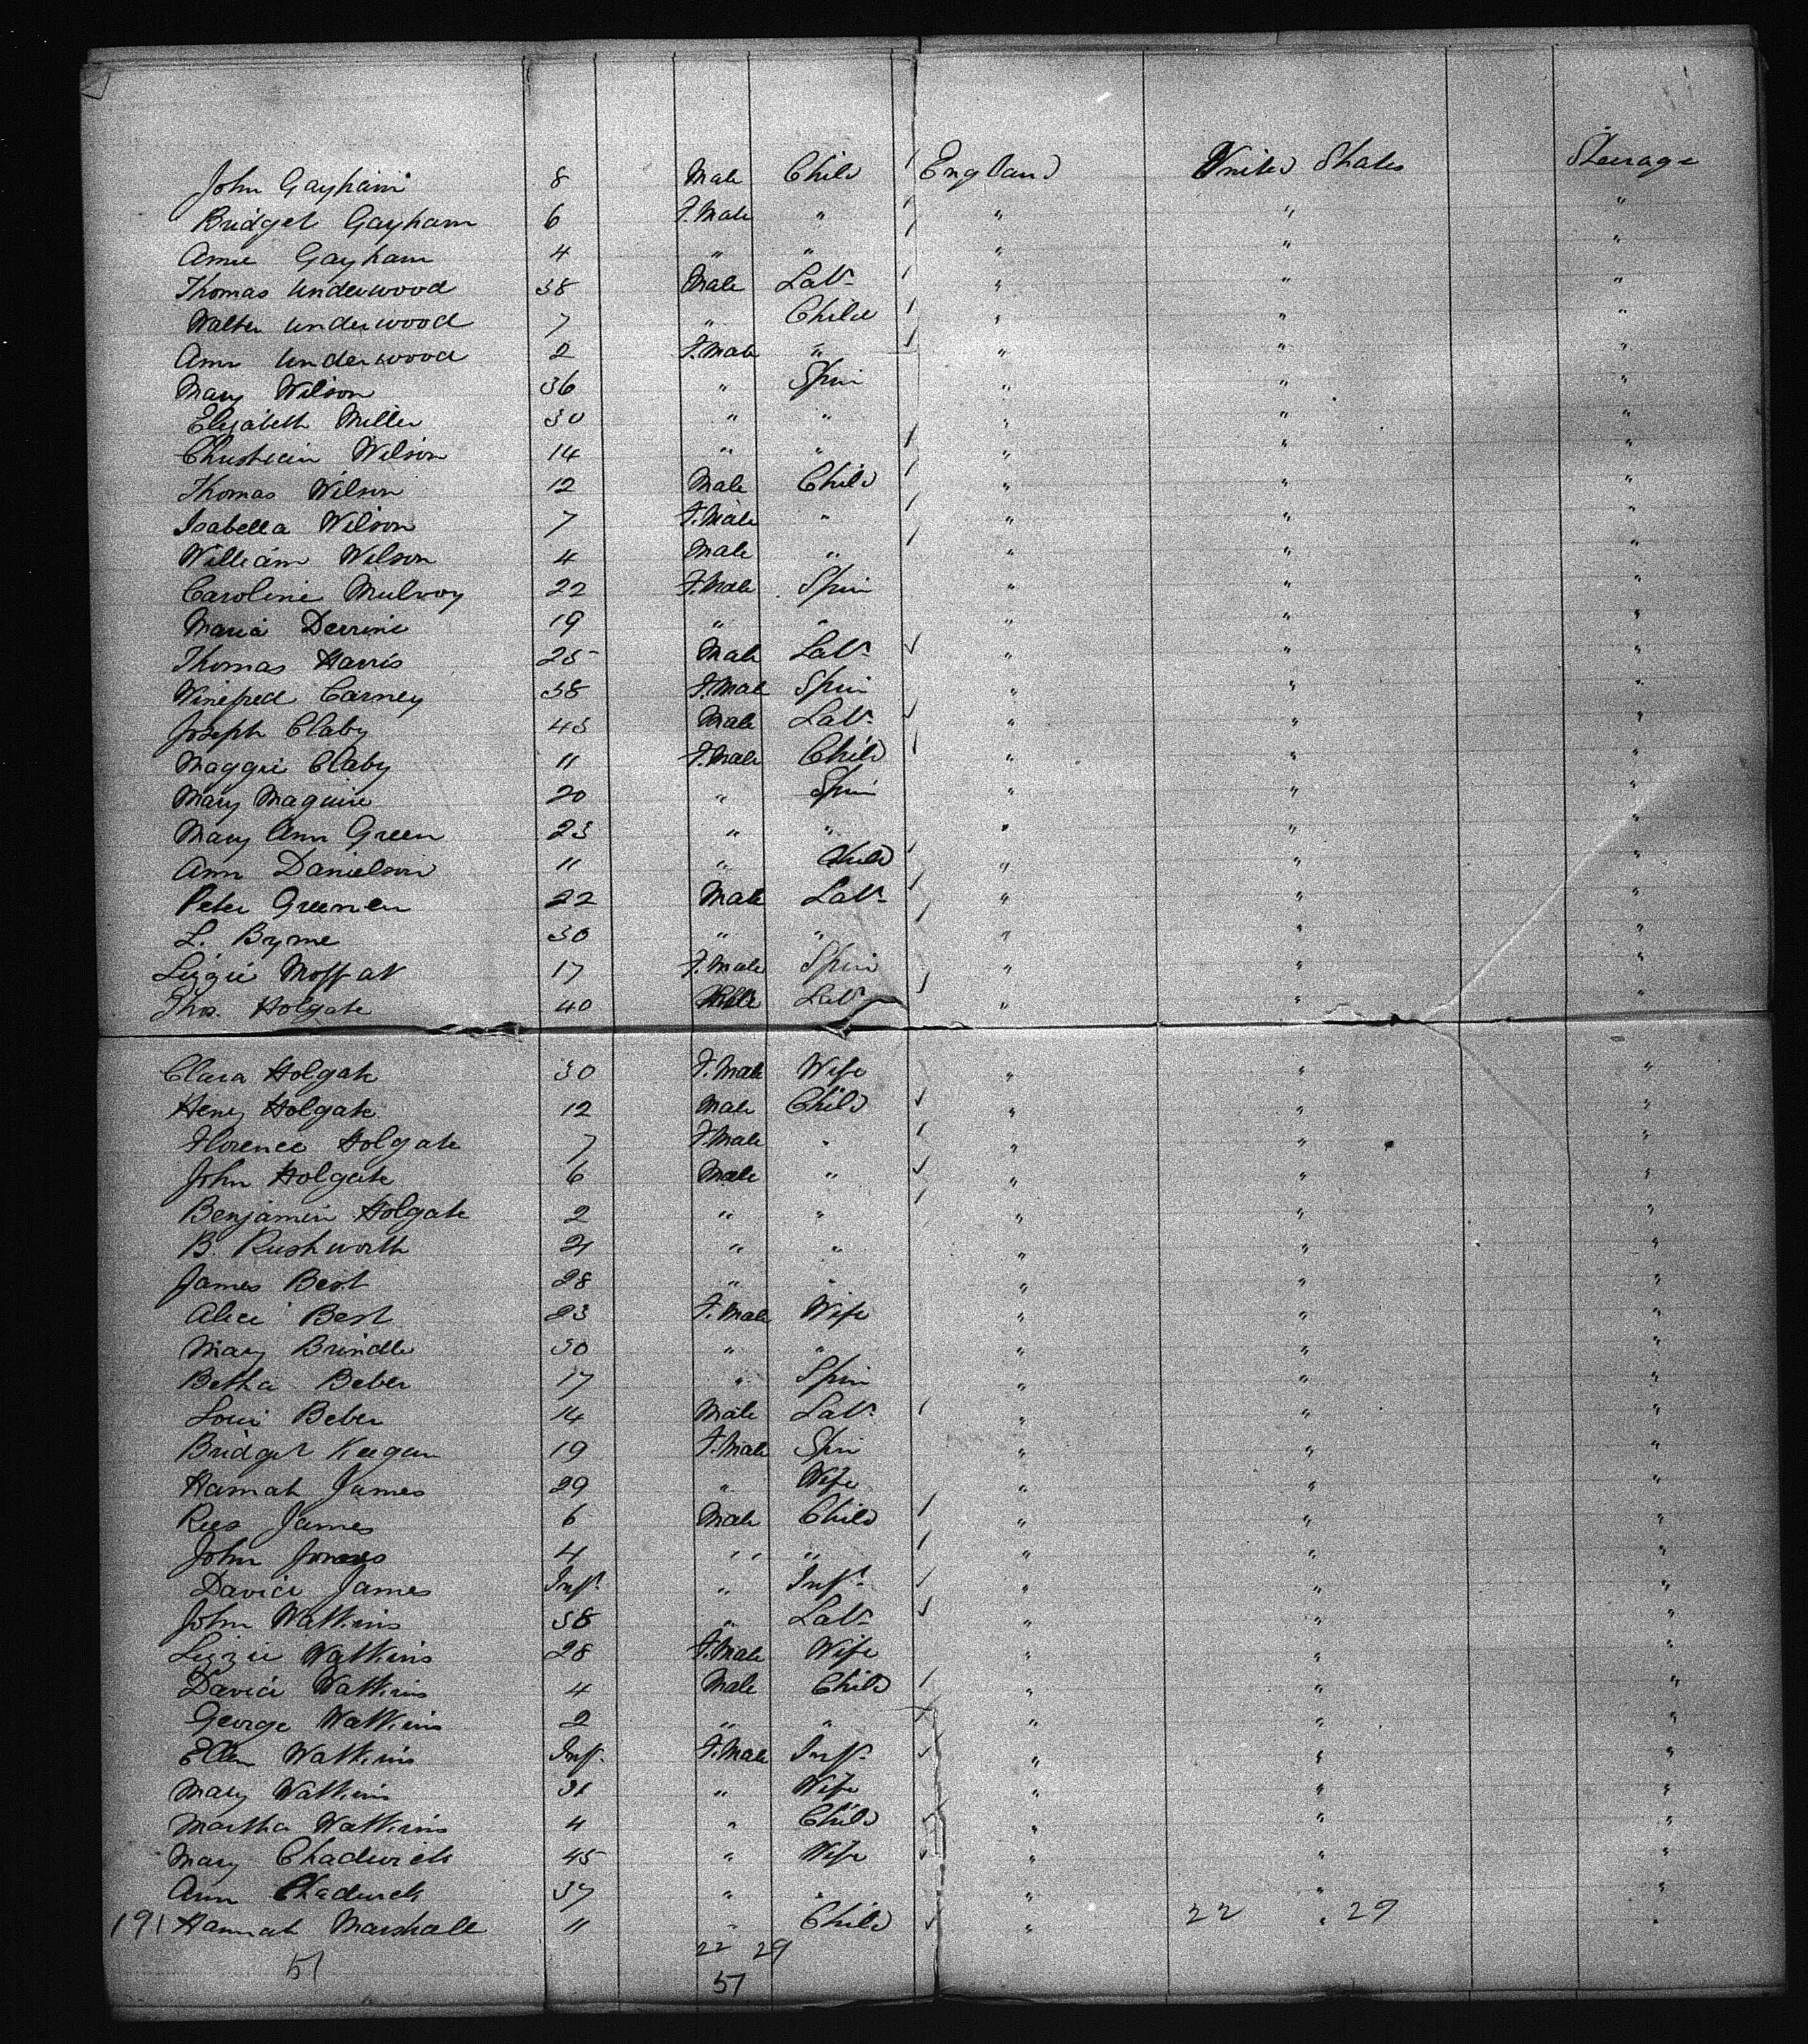 John Gayham 8 Male Child England United States Steerage
Bridget Gayham 6 F.Male " " " "
Annie Gayham 4 " " " " "
Thomas Underwood 38 Male Labr " " "
Walter Underwood 7 " Child " " "
Ann Underwood 2 F.Male " " " "
Mary Wilson 36 " Spin " " "
Elizabeth Miller 30 " " " " "
Christien Wilson 14 " " " " "
Thomas Wilson 12 Male Child " " "
Isabella Wilson 7 F.Male " " " "
William Wilson 4 Male " " " "
Caroline Mulvoy 22 F.Male Spin " " "
Maria Derrine 19 " " " " "
Thomas Harris 25 Male Labr " " "
Winefred Carney 38 F.Male Spin " " "
Joseph Claby 45 Male Labr " " "
Maggie Claby 11 F.Male Child " " "
Mary Maguire 20 " Spin " " "
Mary Ann Green 23 " " " " "
Ann Danielson 11 " Child " " "
Peter Greenen 22 Male Labr " " "
L. Byrne 30 " " " " "
Lizzie Moffat 17 F.Male Spin " " "
Thos. Holgate 40 Male Labr " " "
Clara Holgate 30 F.Male Wife " " "
Heny Holgate 12 Male Child " " "
Florence Holgate 7 F.Male " " " "
John Holgate 6 Male " " " "
Benjamin Holgate 2 " " " " "
B. Rushworth 21 " " " " "
James Best 28 " " " " "
Alice Best 23 F.Male Wife " " "
Mary Brindle 30 " " " " "
Betha Beber 17 " Spin " " "
Loui Beber 14 Male Labr " " "
Bridget Keegan 19 F.Male Spin " " "
Hannah James 29 " Wife " " "
Rees James 6 Male Child " " "
John James 4 " " " " "
David James Inft " Inft " " "
John Watkins 38 " Labr " " "
Lizzie Watkins 28 F.Male Wife " " "
David Watkins 4 Male Child " " "
George Watkins 2 " " " " "
Ellen Watkins Inft F.Male Inft " " "
Mary Watkins 31 " Wife " " "
Martha Watkins 4 " Child " " "
Mary Chadwick 45 " Wife " " "
Ann Chadwick 37 " " " " "
191 Hannah Marshall 11 " Child " 22 " 29 "
22 29
51 51